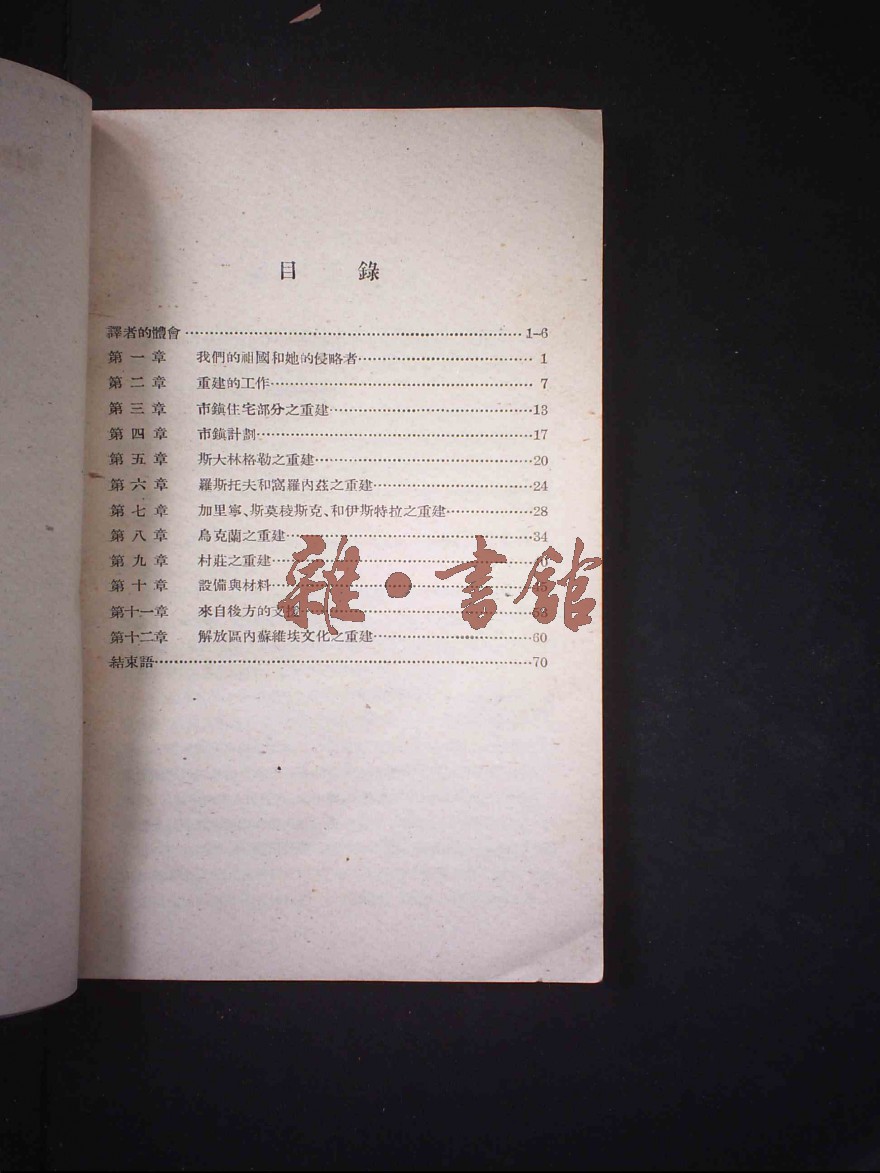 目 錄
譯者的體會 1-6
第一章 我們的祖國和她的侵略者 1
第二章 重建的工作 7
第三章 市鎮住宅部分之重建 13
第四章 市鎮計劃 17
第五章 斯大林格勒之重建 20
第六章 羅斯托夫和窩羅內茲之重建 24
第七章 加里寧、斯莫稜斯克、和伊斯特拉之重建 28
第八章 烏克蘭之重建 34
第九章 村莊之重建
第十章 設備與材料
第十一章 來自後方的支援
第十二章 解放區內蘇維埃文化之重建 60
結束語 70
雜·書館